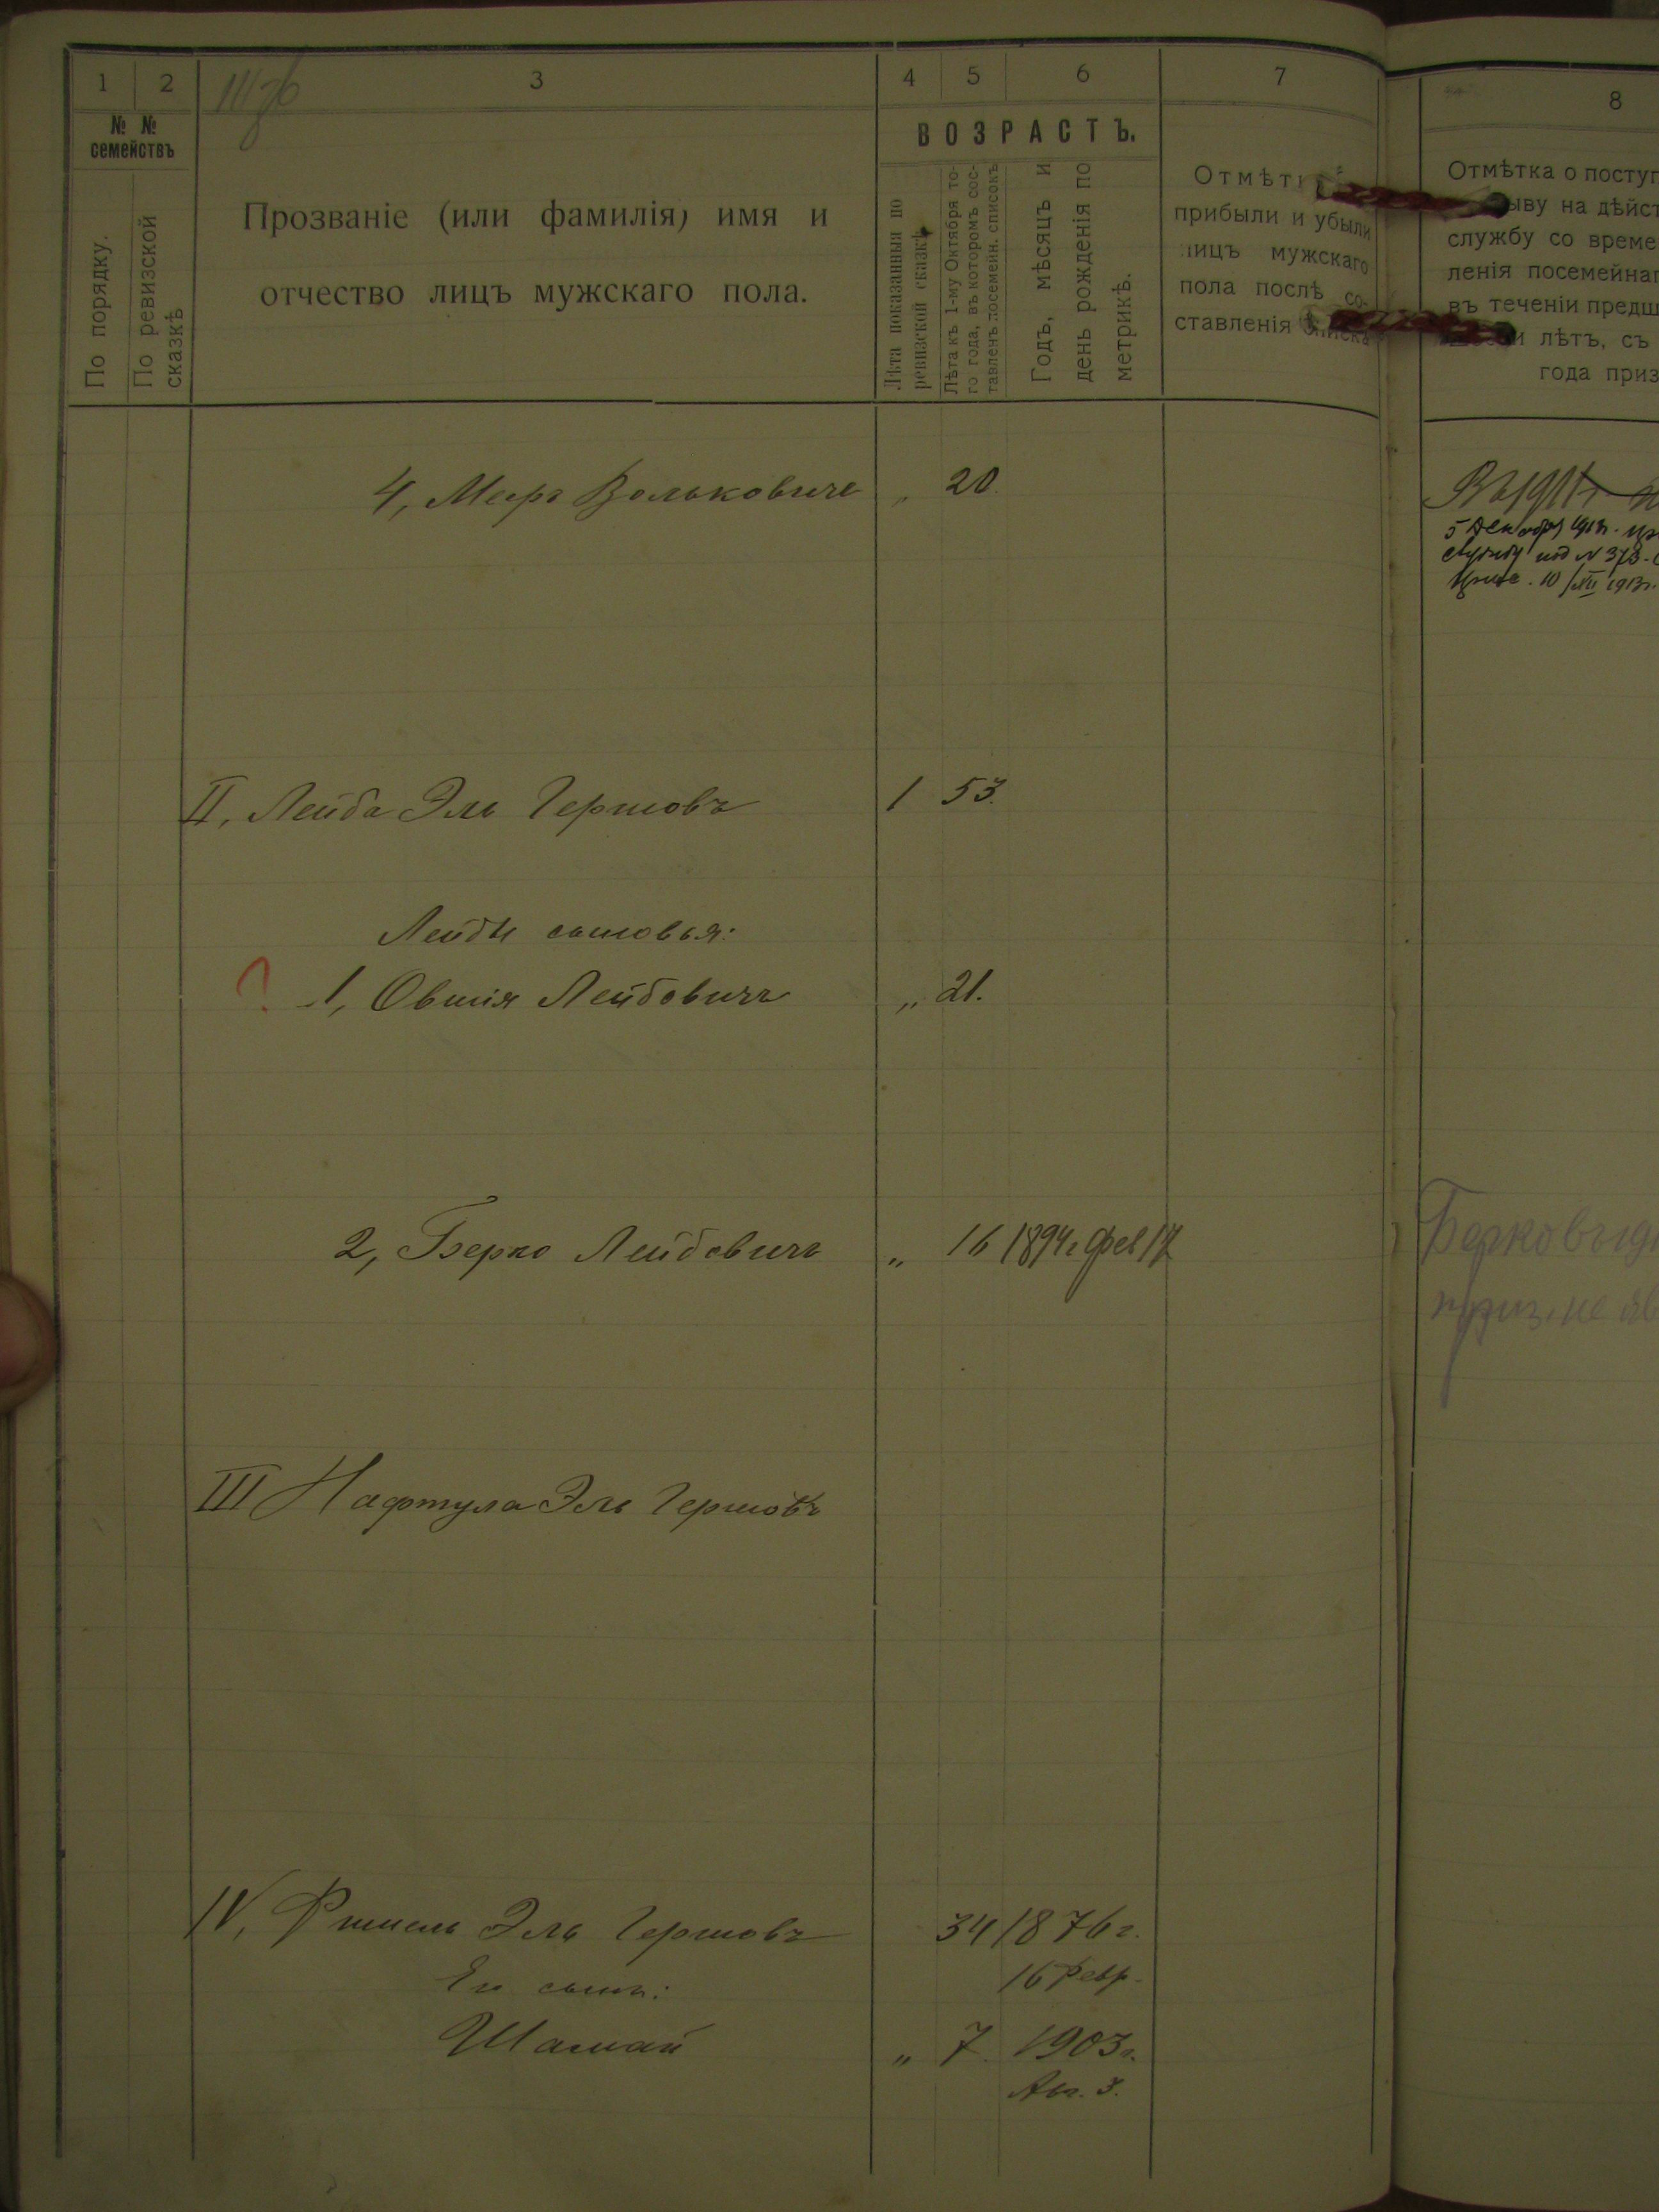 1 2 3 4 5 6 7
№ №
семействъ
По порядку.
По ревизской
сказкѣ
Прозваніе (или фамилія) имя и
отчество лицъ мужскаго пола.
ВОЗРАСТЪ.
Лѣта показанныя по
ревизской сказкѣ
Лѣта къ 1-му Октября то-
го года, въ которомъ сос-
тавленъ посемейн. списокъ
Годъ, мѣсяцъ и
день рожденія по
метрикѣ.
Отмѣт
прибыли и убыли
лицъ мужскаго
пола послѣ со-
ставленія списка
4, Меер Волькович „ 20.
II, Лейба Эль Гершовъ 1 53.
Лейбы сыновья:
? 1, Овшія Лейбовичъ „ 21.
2, Берко Лейбовичъ „ 16 1894 г. фев 17
III Нафтула Эль Гершовъ
IV, Фишель Эль Гершовъ 34 1876 г.
16 Февр.
Его сынъ:
Шамай „ 7. 1903 г.
Авг. 3.
8
Отмѣтка о поступ
ыву на дѣйст
службу со време
ленія посемейна
въ теченіи предш
и лѣтъ, съ
года приз
5 Декабря 1913 г.
службу под N 373
10/XII 1913 г.
Берко
приз. не яв